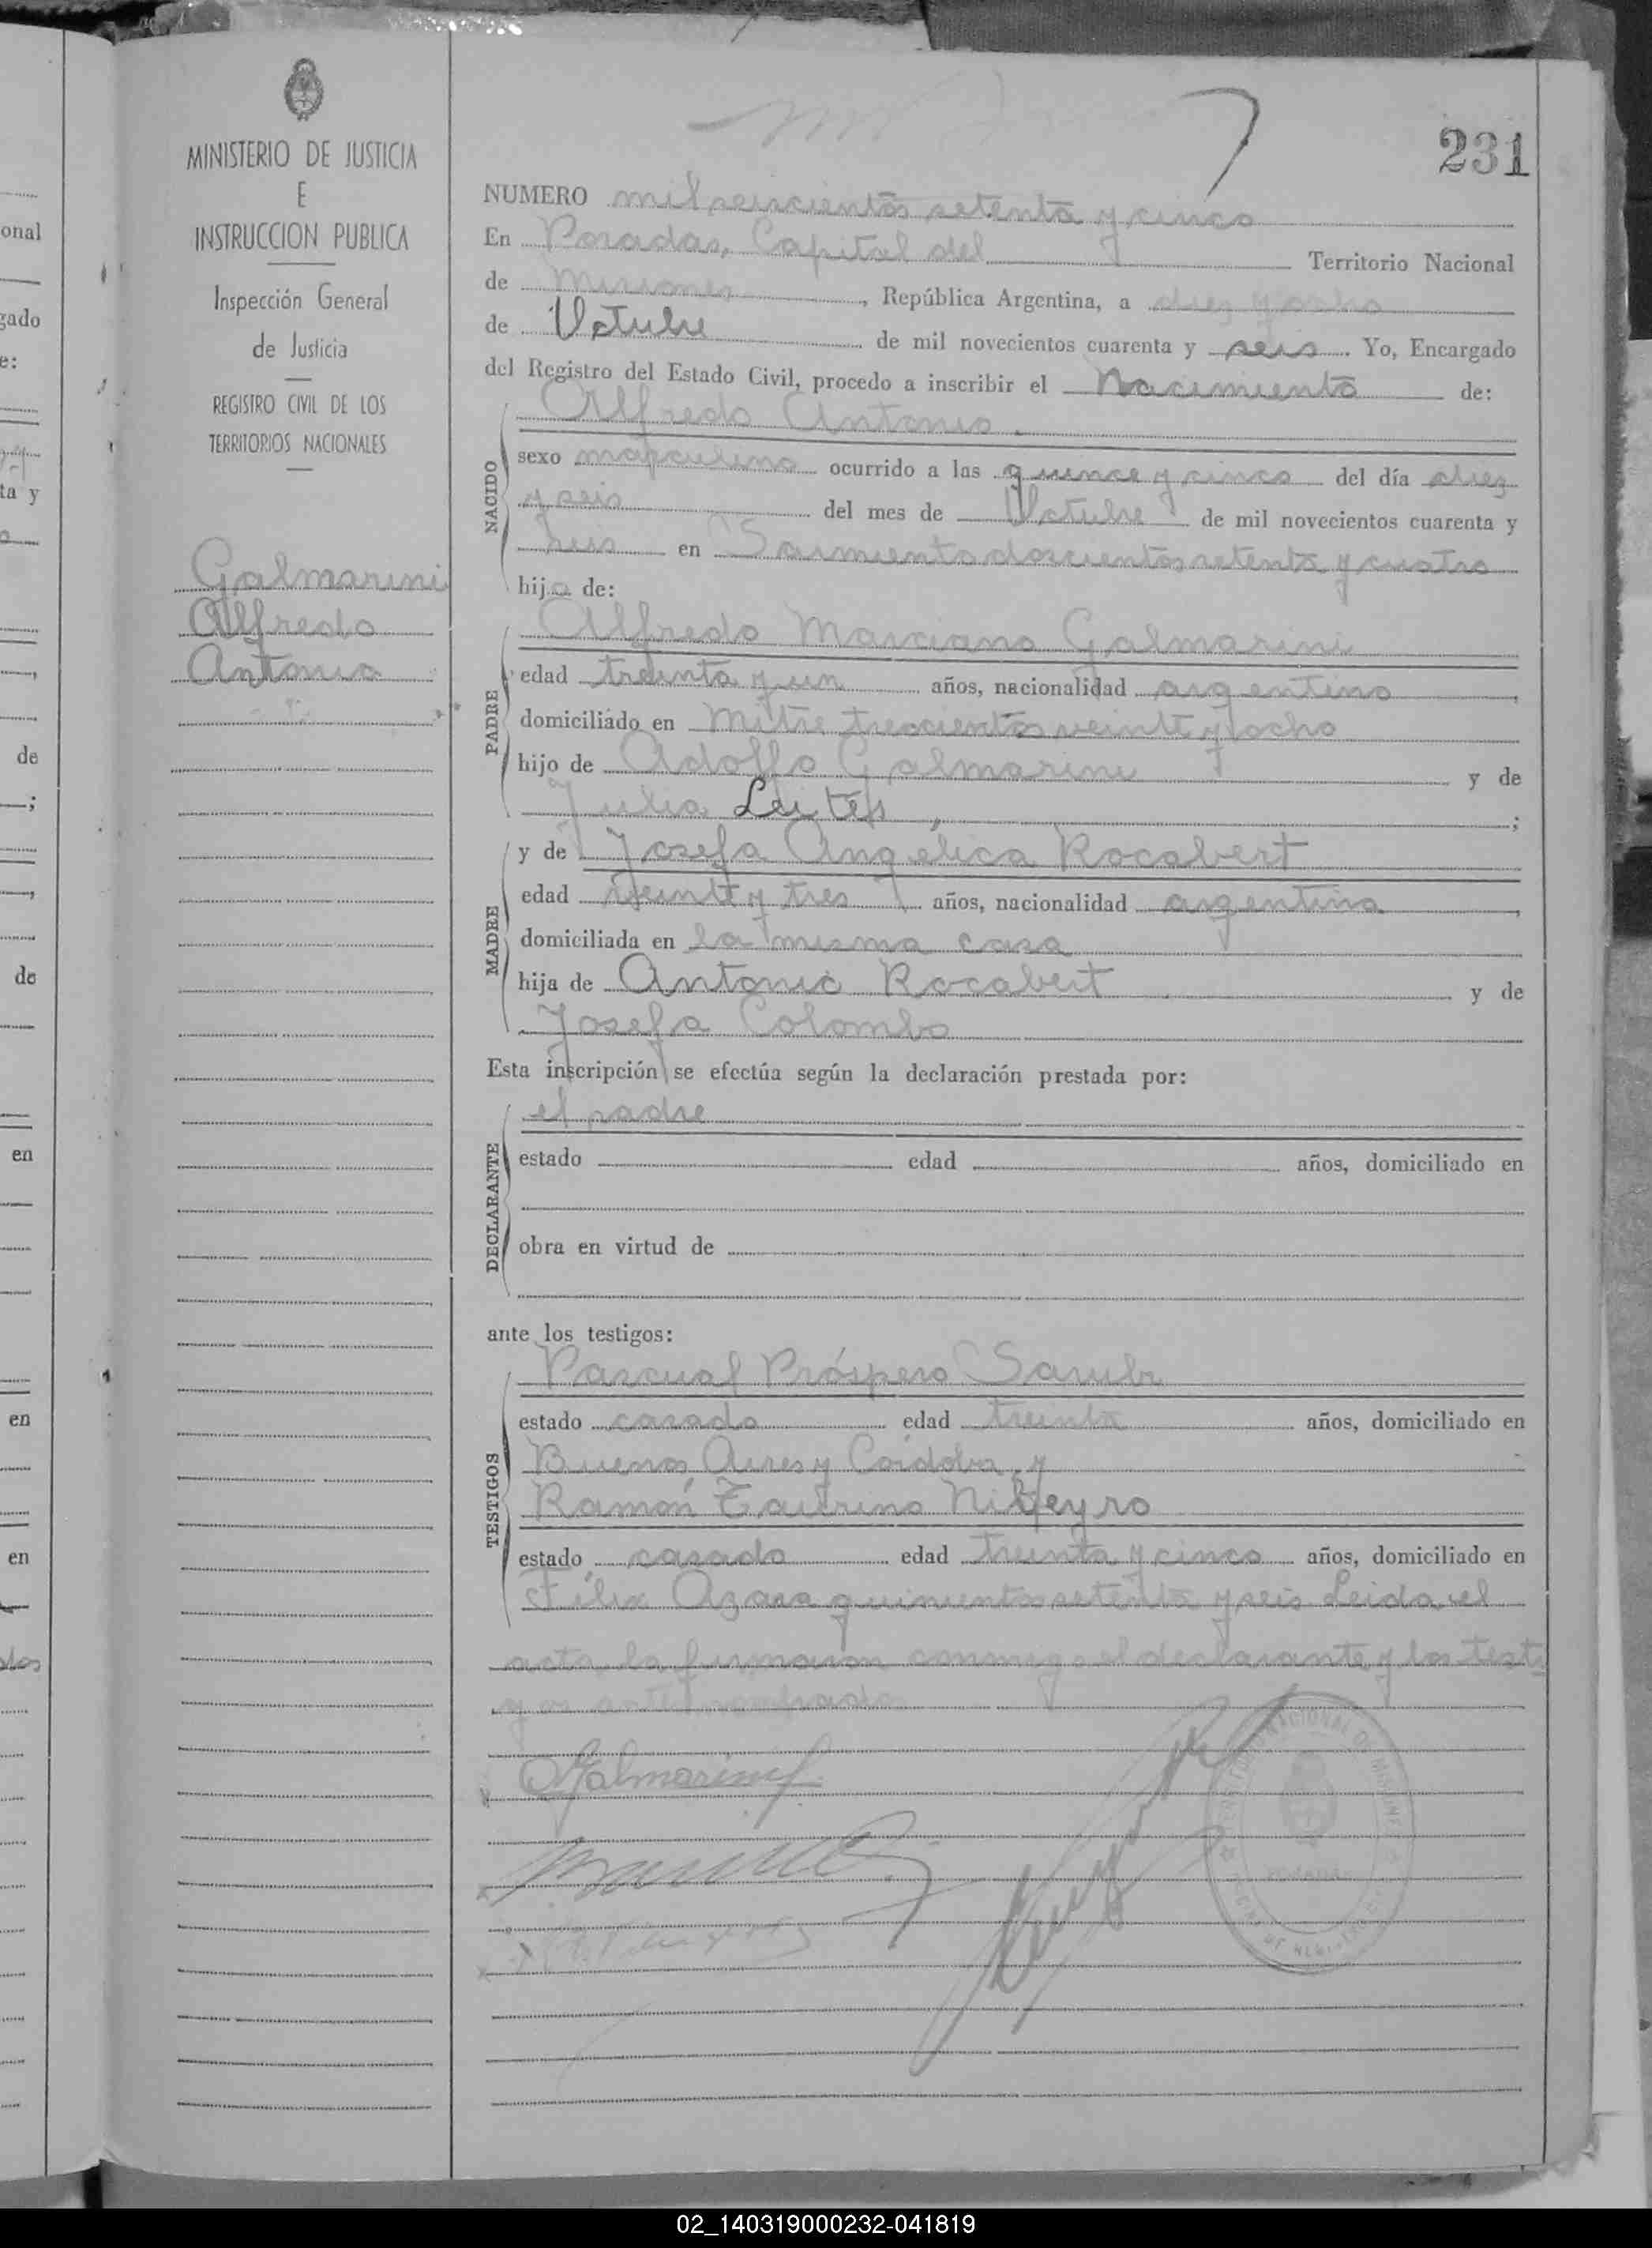 MINISTERIO DE JUSTICIA
E
INSTRUCCION PUBLICA
Inspección General
de Justicia
REGISTRO CIVIL DE LOS
TERRITORIOS NACIONALES
Galmarini
Alfredo
Antonio
231
NUMERO mil seiscientos setenta y cinco
En Posadas, Capital del Territorio Nacional
de Misiones, República Argentina, a diez y ocho
de Octubre de mil novecientos cuarenta y seis. Yo, Encargado
del Registro del Estado Civil, procedo a inscribir el Nacimiento de:
Alfredo Antonio.
NACIDO
sexo masculino ocurrido a las quince y cinco del día diez
y seis del mes de Octubre de mil novecientos cuarenta y
seis en Sarmiento doscientos setenta y cuatro
hijo de:
Alfredo Marciano Galmarini
PADRE
edad treinta y un años, nacionalidad argentino,
domiciliado en Mitre trescientos veinte y ocho
hijo de Adolfo Galmarini y de
Julia Leites, ;
y de Josefa Angélica Rocabert
MADRE
edad veinte y tres años, nacionalidad argentina,
domiciliada en la misma casa
hija de Antonio Rocabert y de
Josefa Colombo
Esta inscripción se efectúa según la declaración prestada por:
el padre
DECLARANTE
estado edad años, domiciliado en
obra en virtud de
ante los testigos:
Pascual Próspero Sarubi
TESTIGOS
estado casado edad treinta años, domiciliado en
Buenos Aires y Córdoba, y
Ramón Niveyro
estado casado edad treinta y cinco años, domiciliado en
Félix Azara quinientos setenta y seis. Leida el
acta la firmaron conmigo el declarante y los testi
gos antes nombrados
Galmarini
onal
gado
e:
ta y
de
;
de
en
en
en
dos
02_140319000232-041819